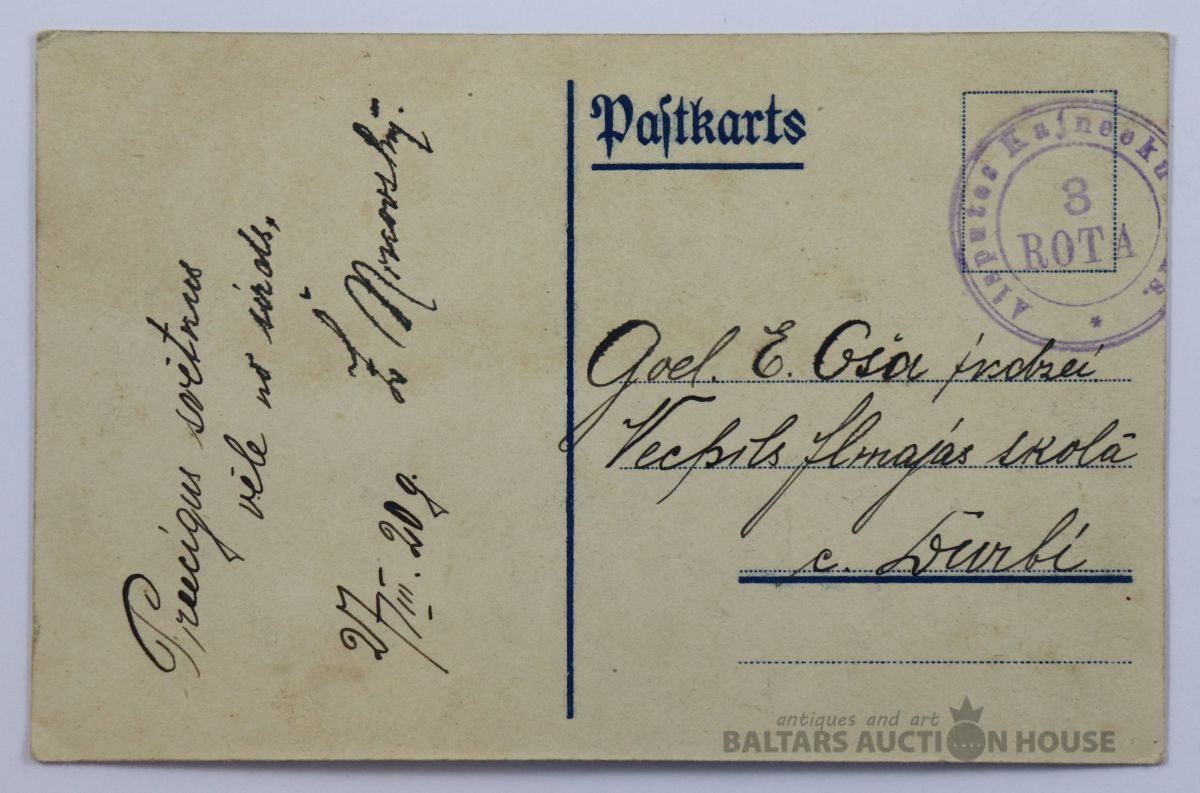 Preecigus svētkus
vēle no sirds,
27/III. 20 g.
Paſtkarts
Aisputes Kajneeku
3
ROTA
*
God. E. Oša jkdzei.
Vecpils ſlmajás skolā
c. Durbi
antiques and art
BALTARS AUCTION HOUSE